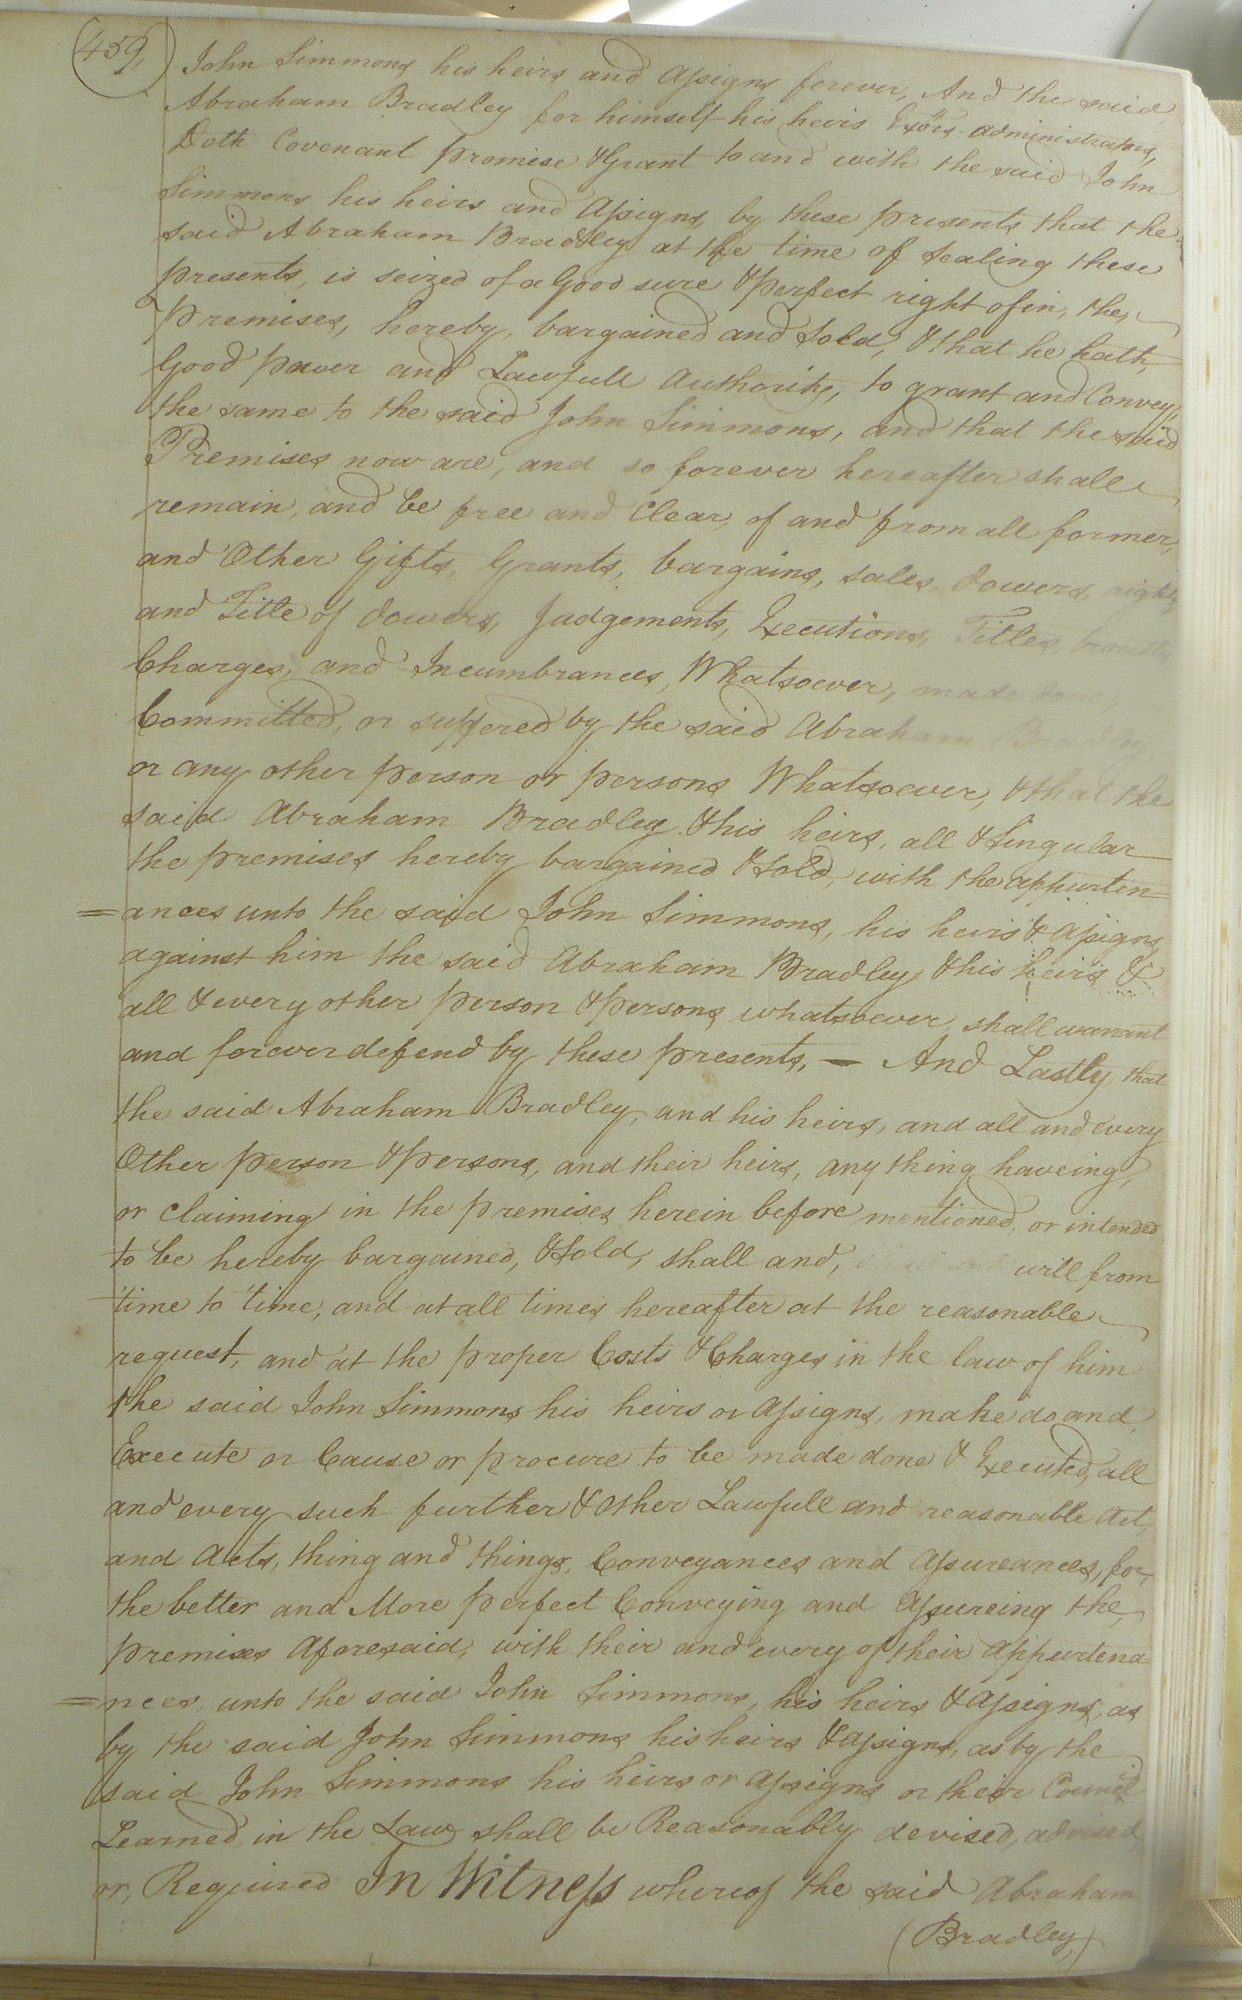 459,
John Simmons his heirs and Assigns forever, And the said
Abraham Bradley for himself his heirs Exors. administrators,
Doth Covenant promise & Grant to and with the said John
Simmons his heirs and Assigns, by these presents that the
said Abraham Bradley at the time of Sealing these
presents, is seized of a Good sure & perfect right of in, the,
Premises, hereby, bargained and Sold, & that he hath,
Good power and Lawfull Authority, to grant and Convey,
the same to the said John Simmons, and that the said
Premises now are, and so forever hereafter shall
remain, and be free and Clear, of and from all former,
and Other Gifts, Grants, bargains, sales, dowers, right,
and Title of dowers, Judgements, Executions, Titles,
Charges, and Incumbrances, Whatsoever, made done,
Committed, or suffered by the said Abraham Bradley
or any other person or persons Whatsoever, & that the
said Abraham Bradley & his heirs, all & Singular
the premises hereby bargained & Sold, with the appurten=
=ances unto the said John Simmons, his heirs & Assigns,
against him the said Abraham Bradley & his heirs &
all & every other person & persons whatsoever, shall warrant
and forever defend by these presents, — And Lastly, that
the said Abraham Bradley, and his heirs, and all and every
Other person & persons, and their heirs, any thing haveing,
or claiming in the premises herein before mentioned, or intended
to be hereby bargained, & Sold, shall and, will from
time to time, and at all times hereafter at the reasonable
request, and at the proper Costs & Charges in the law of him
the said John Simmons his heirs or Assigns, make do and,
Execute or Cause or procure to be made done & Executed, all
and every such further & other Lawfull and reasonable Act,
and Acts, thing and things, Conveyances and Assureances, for,
the better and More perfect Conveying and Assureing the,
premises Aforesaid, with their and every of their Appurtena=
=nces, unto the said John Simmons, his heirs & Assigns, as
by the said John Simmons his heirs & Assigns, as by the
said John Simmons his heirs or Assigns or their Council
Learned in the Law shall be Reasonably devised, advised,
or, Required In Witness whereof the said Abraham
(Bradley,)